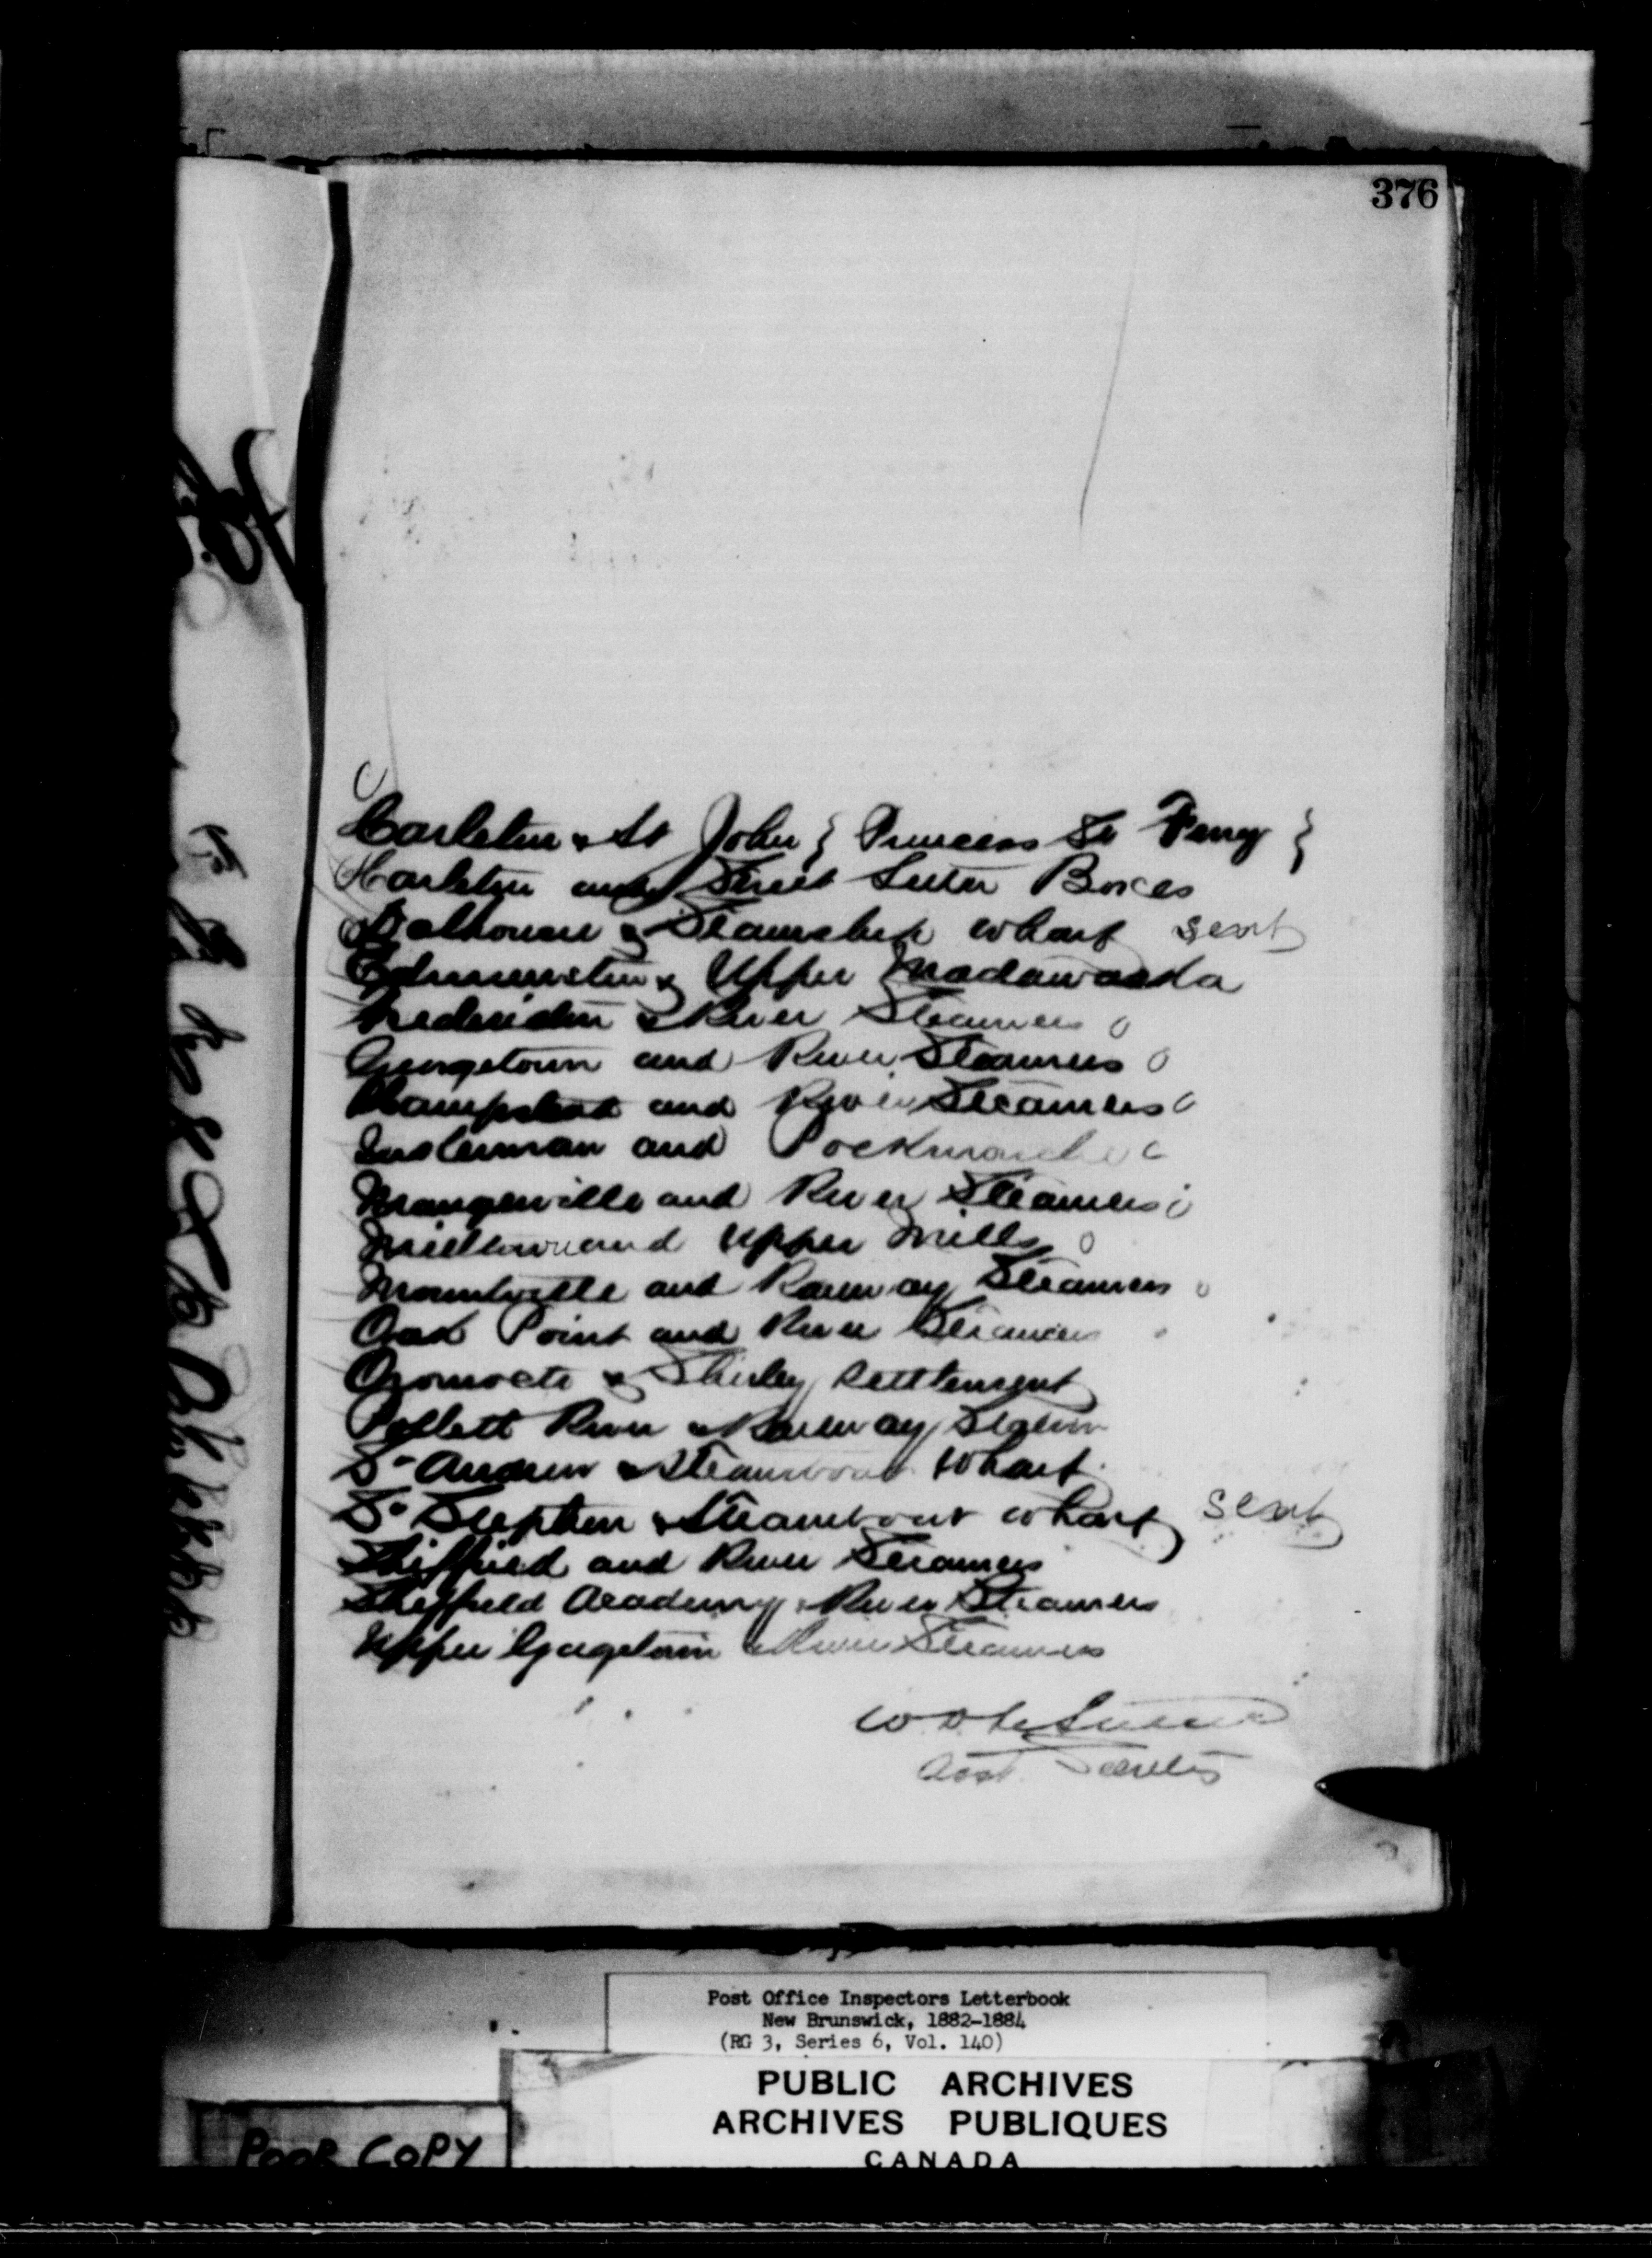 376
Carleton & St John { Princess St Ferry }
Carleton and Street Letter Boxes
Dalhousie & Steamship Wharf sent
Edmunston & Upper Madawaska
Fredericton & River Steamers
Georgetown and River Steamers
Hampstead and River Steamers
Inkerman and Pockmouche
Maugerville and River Steamers
Milltown and Upper Mills
and Railway Steamers
Oak Point and River Steamers
Oromocto & Shirley Settlement
Pollett River & Railway Station
St Andrew & Steamboat Wharf
St Stephen & Steamboat Wharf sent
Sheffield and River Steamers
Sheffield Academy & River Steamers
Upper Gagetown & River Steamers
Post Office Inspectors Letterbook
New Brunswick, 1882-1884
(RG 3, Series 6, Vol. 140)
PUBLIC ARCHIVES
ARCHIVES PUBLIQUES
CANADA
POOR COPY